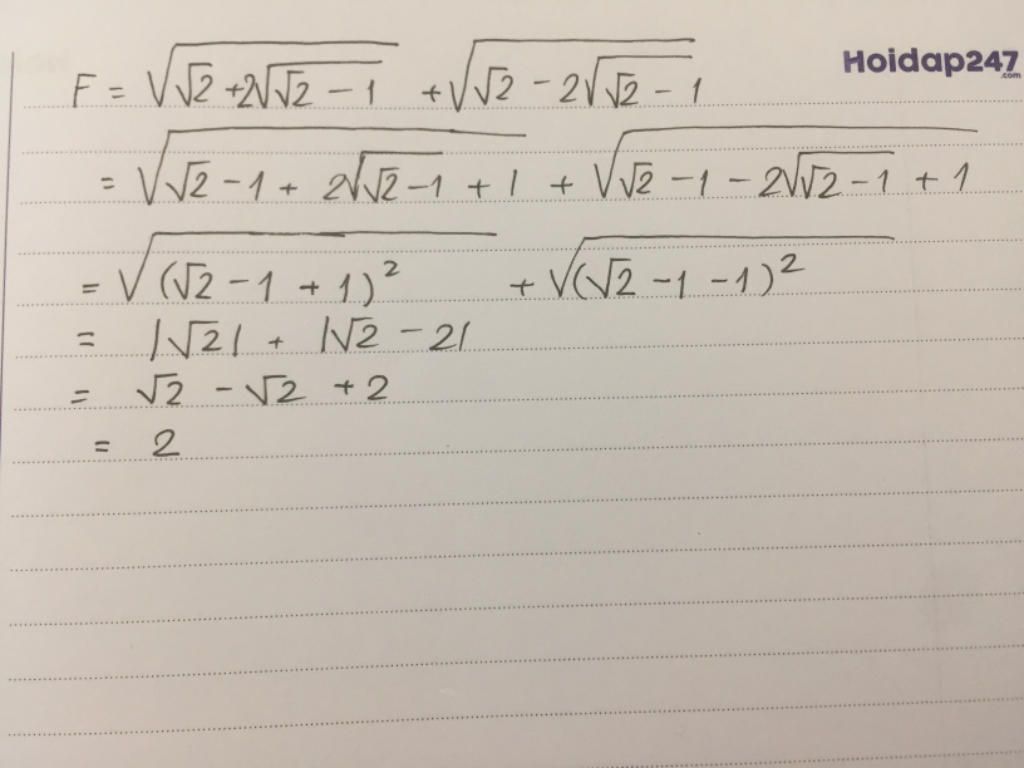 Hoidap247.com
F = √(√2 + 2√(√2 - 1)) + √(√2 - 2√(√2 - 1))
= √(√2 - 1 + 2√(√2 - 1) + 1) + √(√2 - 1 - 2√(√2 - 1) + 1)
= √((√2 - 1 + 1)²) + √((√2 - 1 - 1)²)
= |√2| + |√2 - 2|
= √2 - √2 + 2
= 2